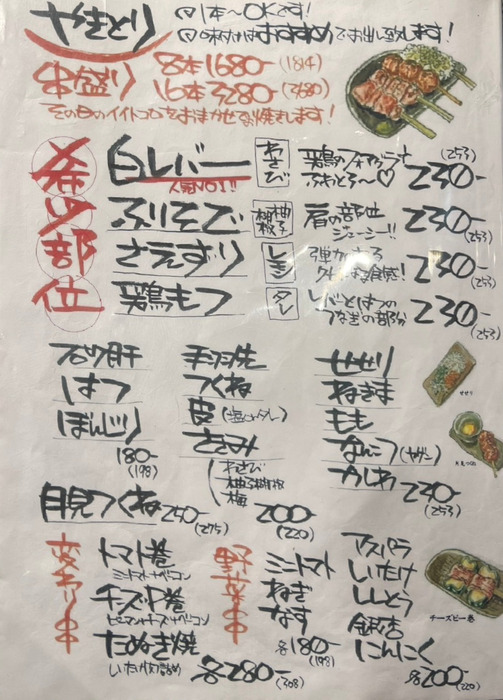 やきとり
1本～OKです!
味付けはおすすめでお出し致します!
串盛り 8本1680-(1814)
16本 3280-(3680)
その日のイイトコをおまかせでお焼きします!
希少部位
白レバー わさび 鶏のフォアグラ ふわとろ～♡ 230-(253)
人気NO1!!
ふりそで 柚子胡椒 肩の部位 ジューシー!! 230-(253)
さえずり レモン 230-(253)
鶏もつ タレ レバとはつの つなぎの部分 230-(253)
石少肝
はつ
ぼんじり
180-
(198)
手羽先
つくね
皮(塩orタレ)
ささみ
わさび
柚子胡椒
梅
200-
(220)
せせり
ねぎま
もも
なんこつ(ヤゲン)
かしわ 230-
(253)
月見つくね 250-
(275)
変わり串
トマト巻
ミニトマトナベーコン
チーズピー巻
ピーマンナチーズナベーコン
たぬき焼
しいたけ肉詰め
各280-(308)
野菜串
ミニトマト
ねぎ
なす
各180-
(198)
アスパラ
しいたけ
ししとう
銀杏
にんにく
各200-
(220)
せせり
月見つくね
チーズピー巻